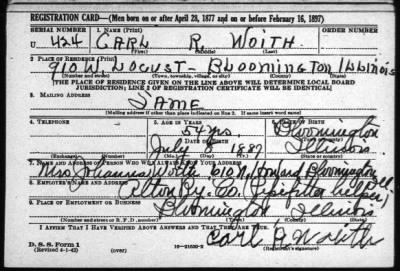 REGISTRATION CARD—(Men born on or after April 28, 1877 and on or before February 16, 1897)
SERIAL NUMBER 1. NAME (Print) ORDER NUMBER
U 424 CARL R. WOITH
(First) (Middle) (Last)
2. PLACE OF RESIDENCE (Print)
910 W. LOCUST - BLOOMINGTON ILLINOIS
(Number and street) (Town, township, village, or city) (County) (State)
[THE PLACE OF RESIDENCE GIVEN ON THE LINE ABOVE WILL DETERMINE LOCAL BOARD
JURISDICTION; LINE 2 OF REGISTRATION CERTIFICATE WILL BE IDENTICAL]
3. MAILING ADDRESS
SAME
[Mailing address if other than place indicated on line 2. If same insert word same]
4. TELEPHONE 5. AGE IN YEARS 6. PLACE OF BIRTH
54 yrs. Bloomington
DATE OF BIRTH
July 1887 Illinois
7. NAME AND ADDRESS OF PERSON WHO WILL ALWAYS KNOW YOUR ADDRESS
Mrs Johanna 610 N Howard Bloomington Ill
8. EMPLOYER'S NAME AND ADDRESS
Alton Ry. Co. (Pipefitter helper)
9. PLACE OF EMPLOYMENT OR BUSINESS
Bloomington Illinois
(Number and street or R. F. D. number) (Town) (County) (State)
I AFFIRM THAT I HAVE VERIFIED ABOVE ANSWERS AND THAT THEY ARE TRUE.
D. S. S. Form 1
(Revised 4-1-42) (over) Carl R. Woith
(Registrant's signature)